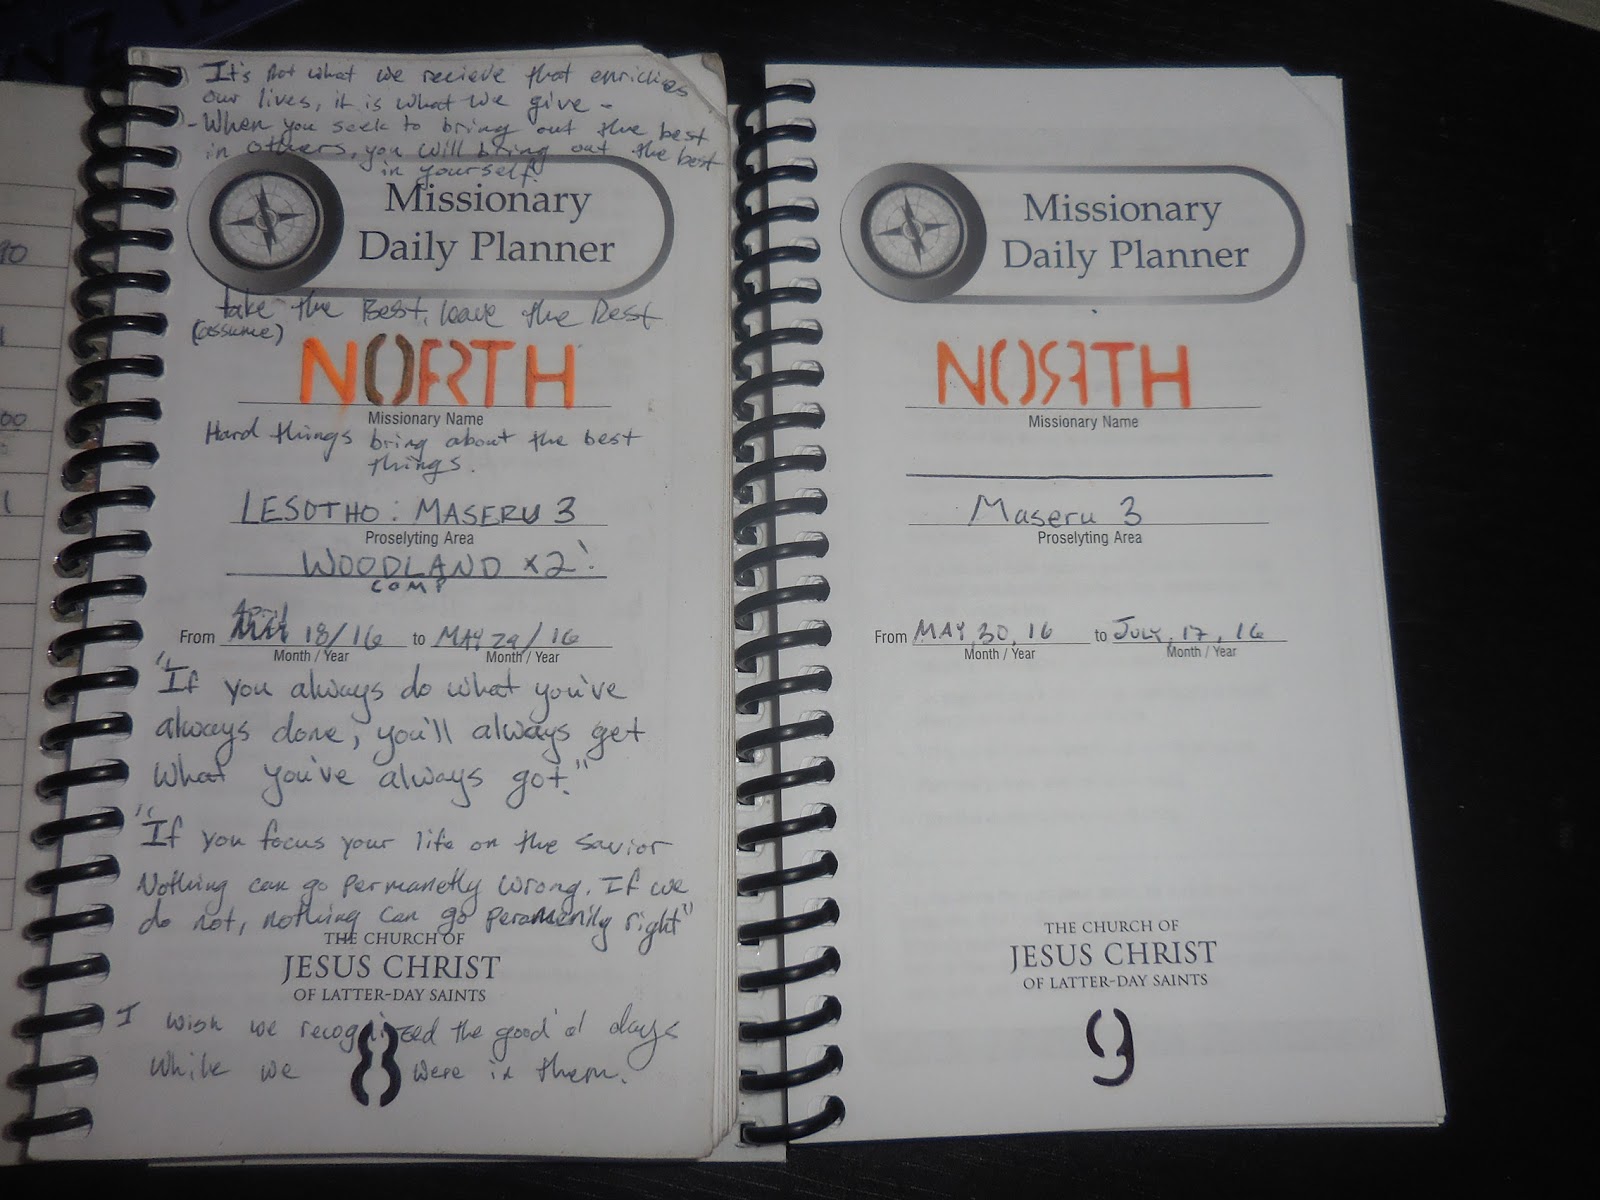 It's not what we recieve that enriches
our lives, it is what we give -
- When you seek to bring out the best
in others, you will bring out the best
in yourself.
Missionary
Daily Planner
take the Best, leave the Rest
(assume)
NORTH
Missionary Name
Hard things bring about the best
things.
LESOTHO: MASERU 3
Proselyting Area
WOODLAND x2!
COMP
April
From MAY 18/16 to MAY 29/16
Month / Year Month / Year
"If you always do what you've
always done, you'll always get
what you've always got."
"If you focus your life on the Savior
Nothing can go permanetly wrong. If we
do not, nothing can go right"
THE CHURCH OF
JESUS CHRIST
OF LATTER-DAY SAINTS
I wish we recognized the good'ol days
while we were in them.
8
Missionary
Daily Planner
NORTH
Missionary Name
Maseru 3
Proselyting Area
From MAY 30, 16 to JULY, 17, 16
Month / Year Month / Year
THE CHURCH OF
JESUS CHRIST
OF LATTER-DAY SAINTS
9
90
1
00
1